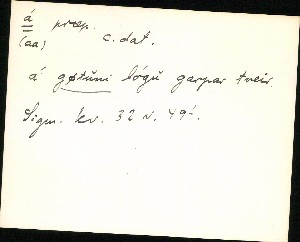 á præp.
(aa) c. dat.
á gøtŭni lógŭ garpar tveir.
Sigm. kv. 32 v. 49⁴.